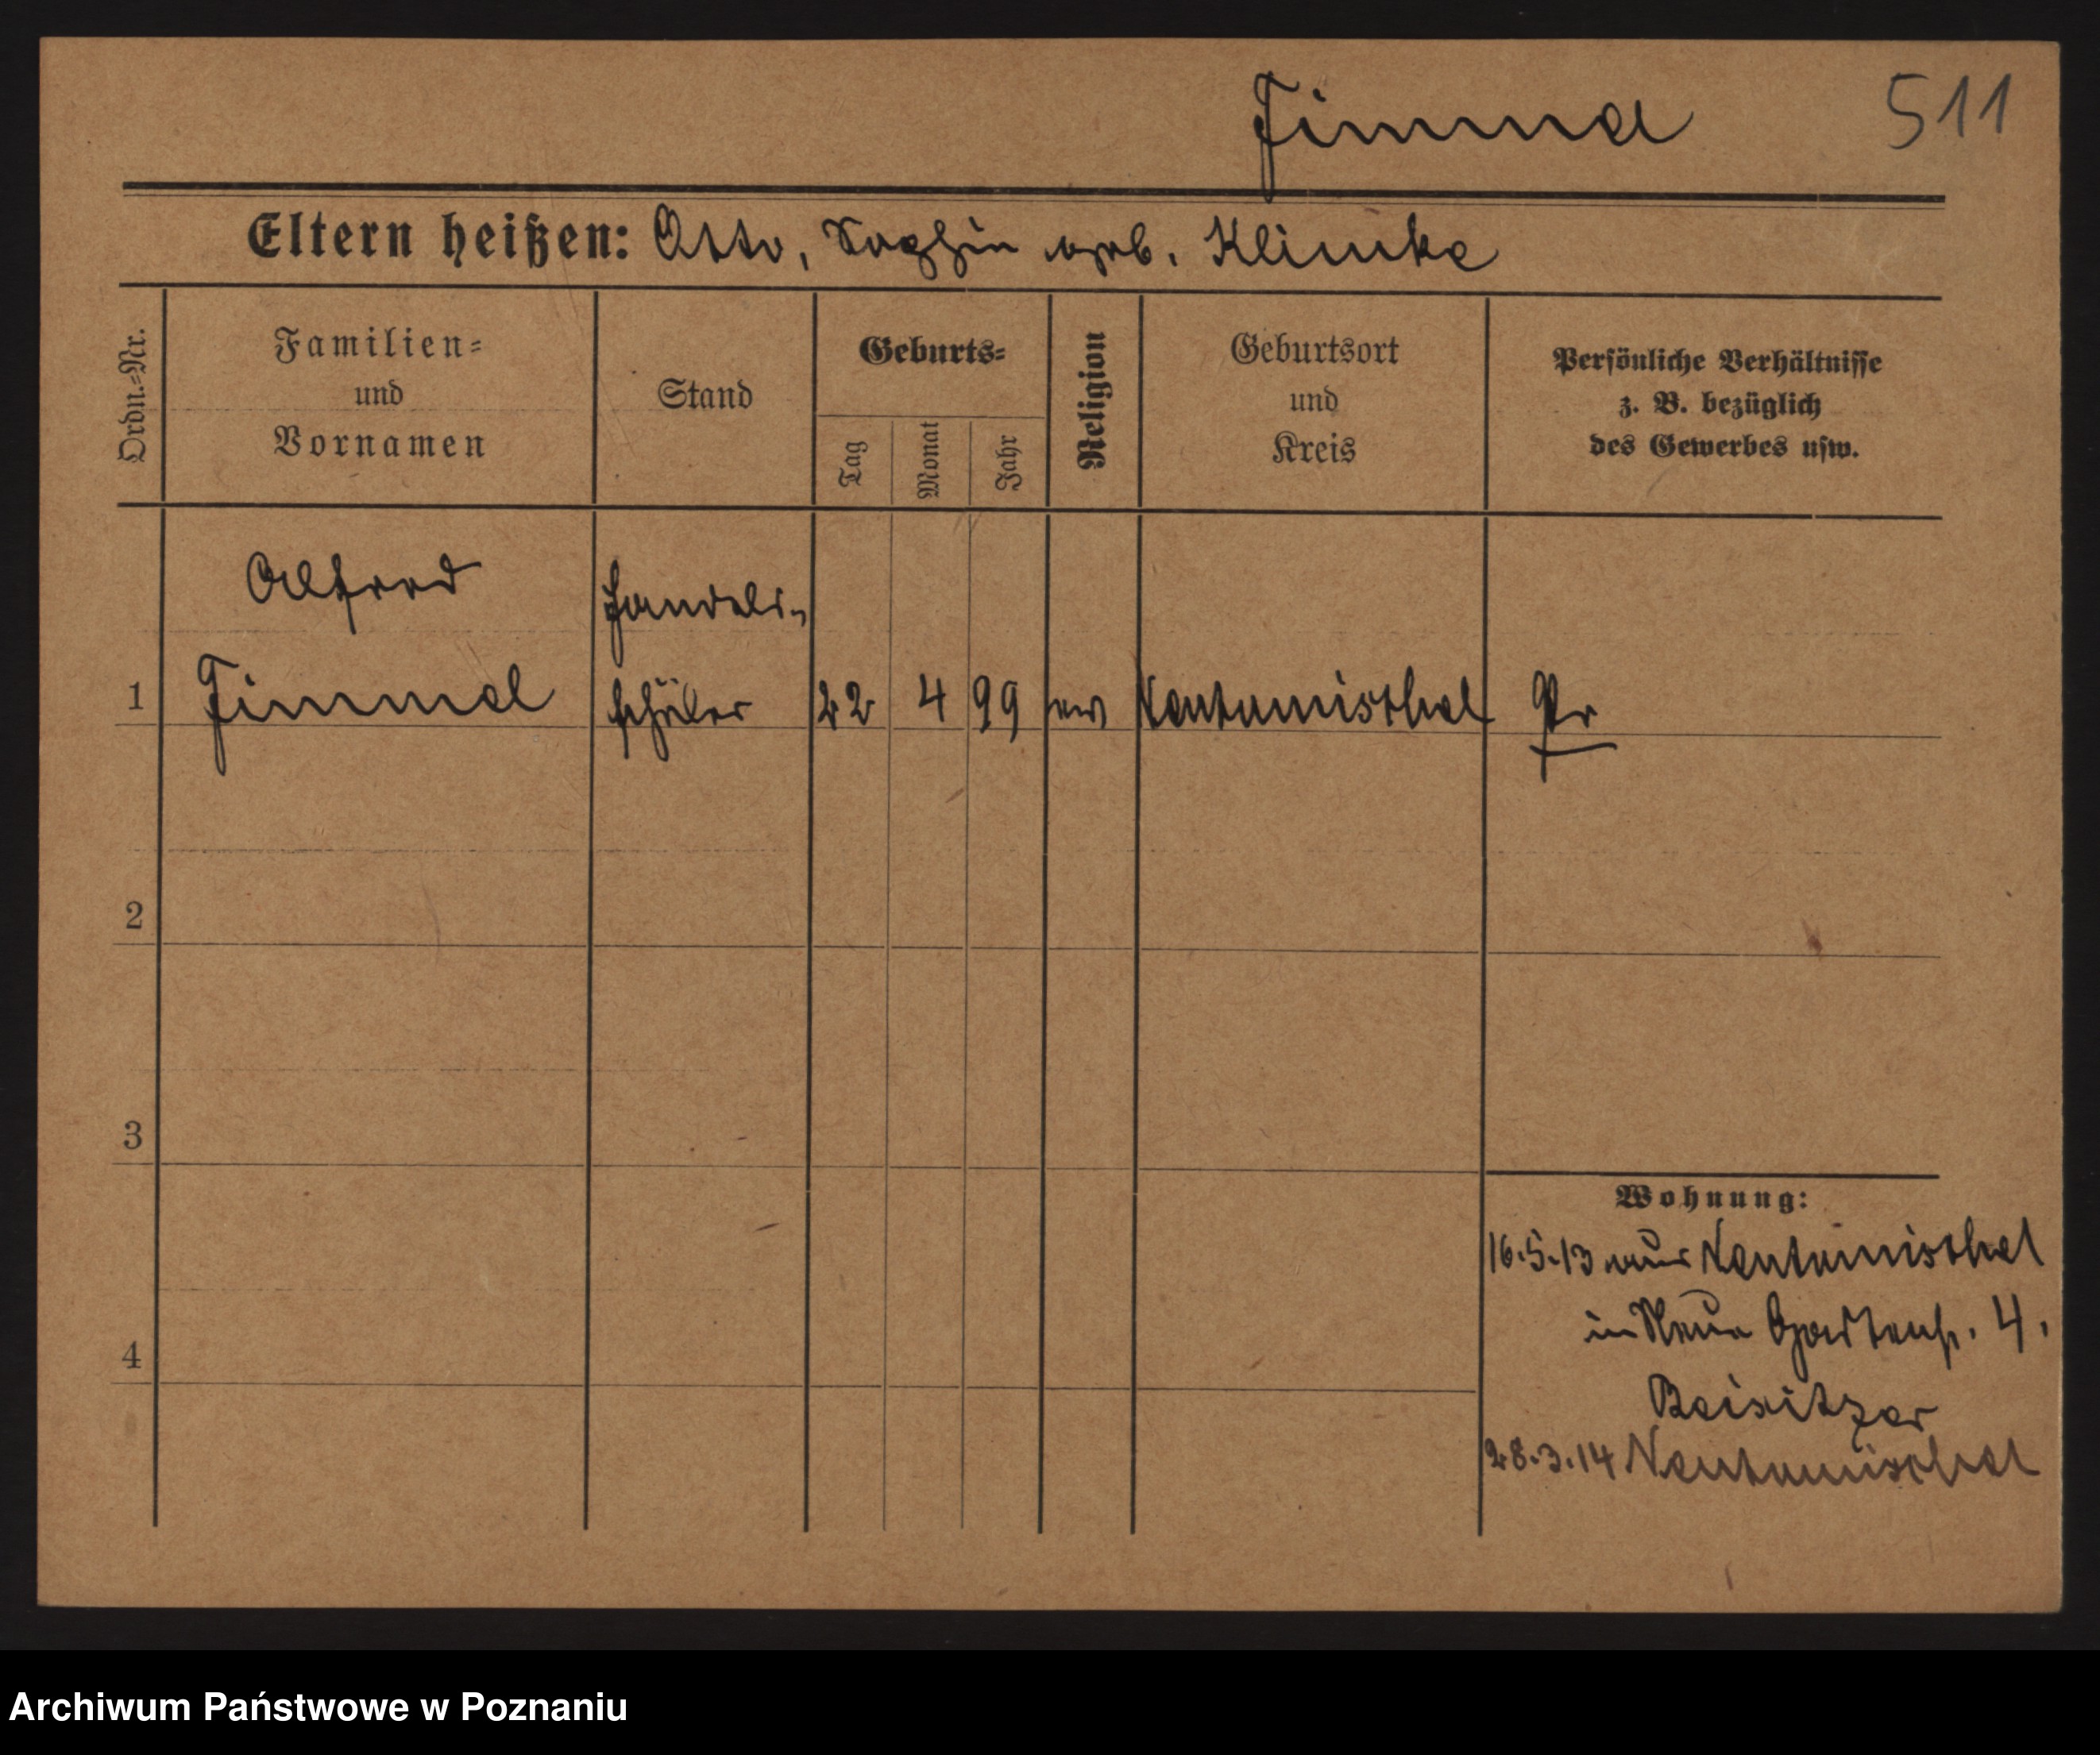 Fimmel 511
Eltern heißen: Otto, Sophie geb. Klimke
Ordn.-Nr.
Familien-
und
Vornamen
Stand
Geburts-
Tag
Monat
Jahr
Religion
Geburtsort
und
Kreis
Persönliche Verhältnisse
z. B. bezüglich
des Gewerbes usw.
Alfred
Handels-
1 Fimmel schüler 22 4 99 ev Neutomischel Pr
2
3
4
Wohnung:
16.5.13 aus Neutomischel
in Neue Gartenstr. 4.
Beisitzer
28.3.14 Neutomischel
Archiwum Państwowe w Poznaniu